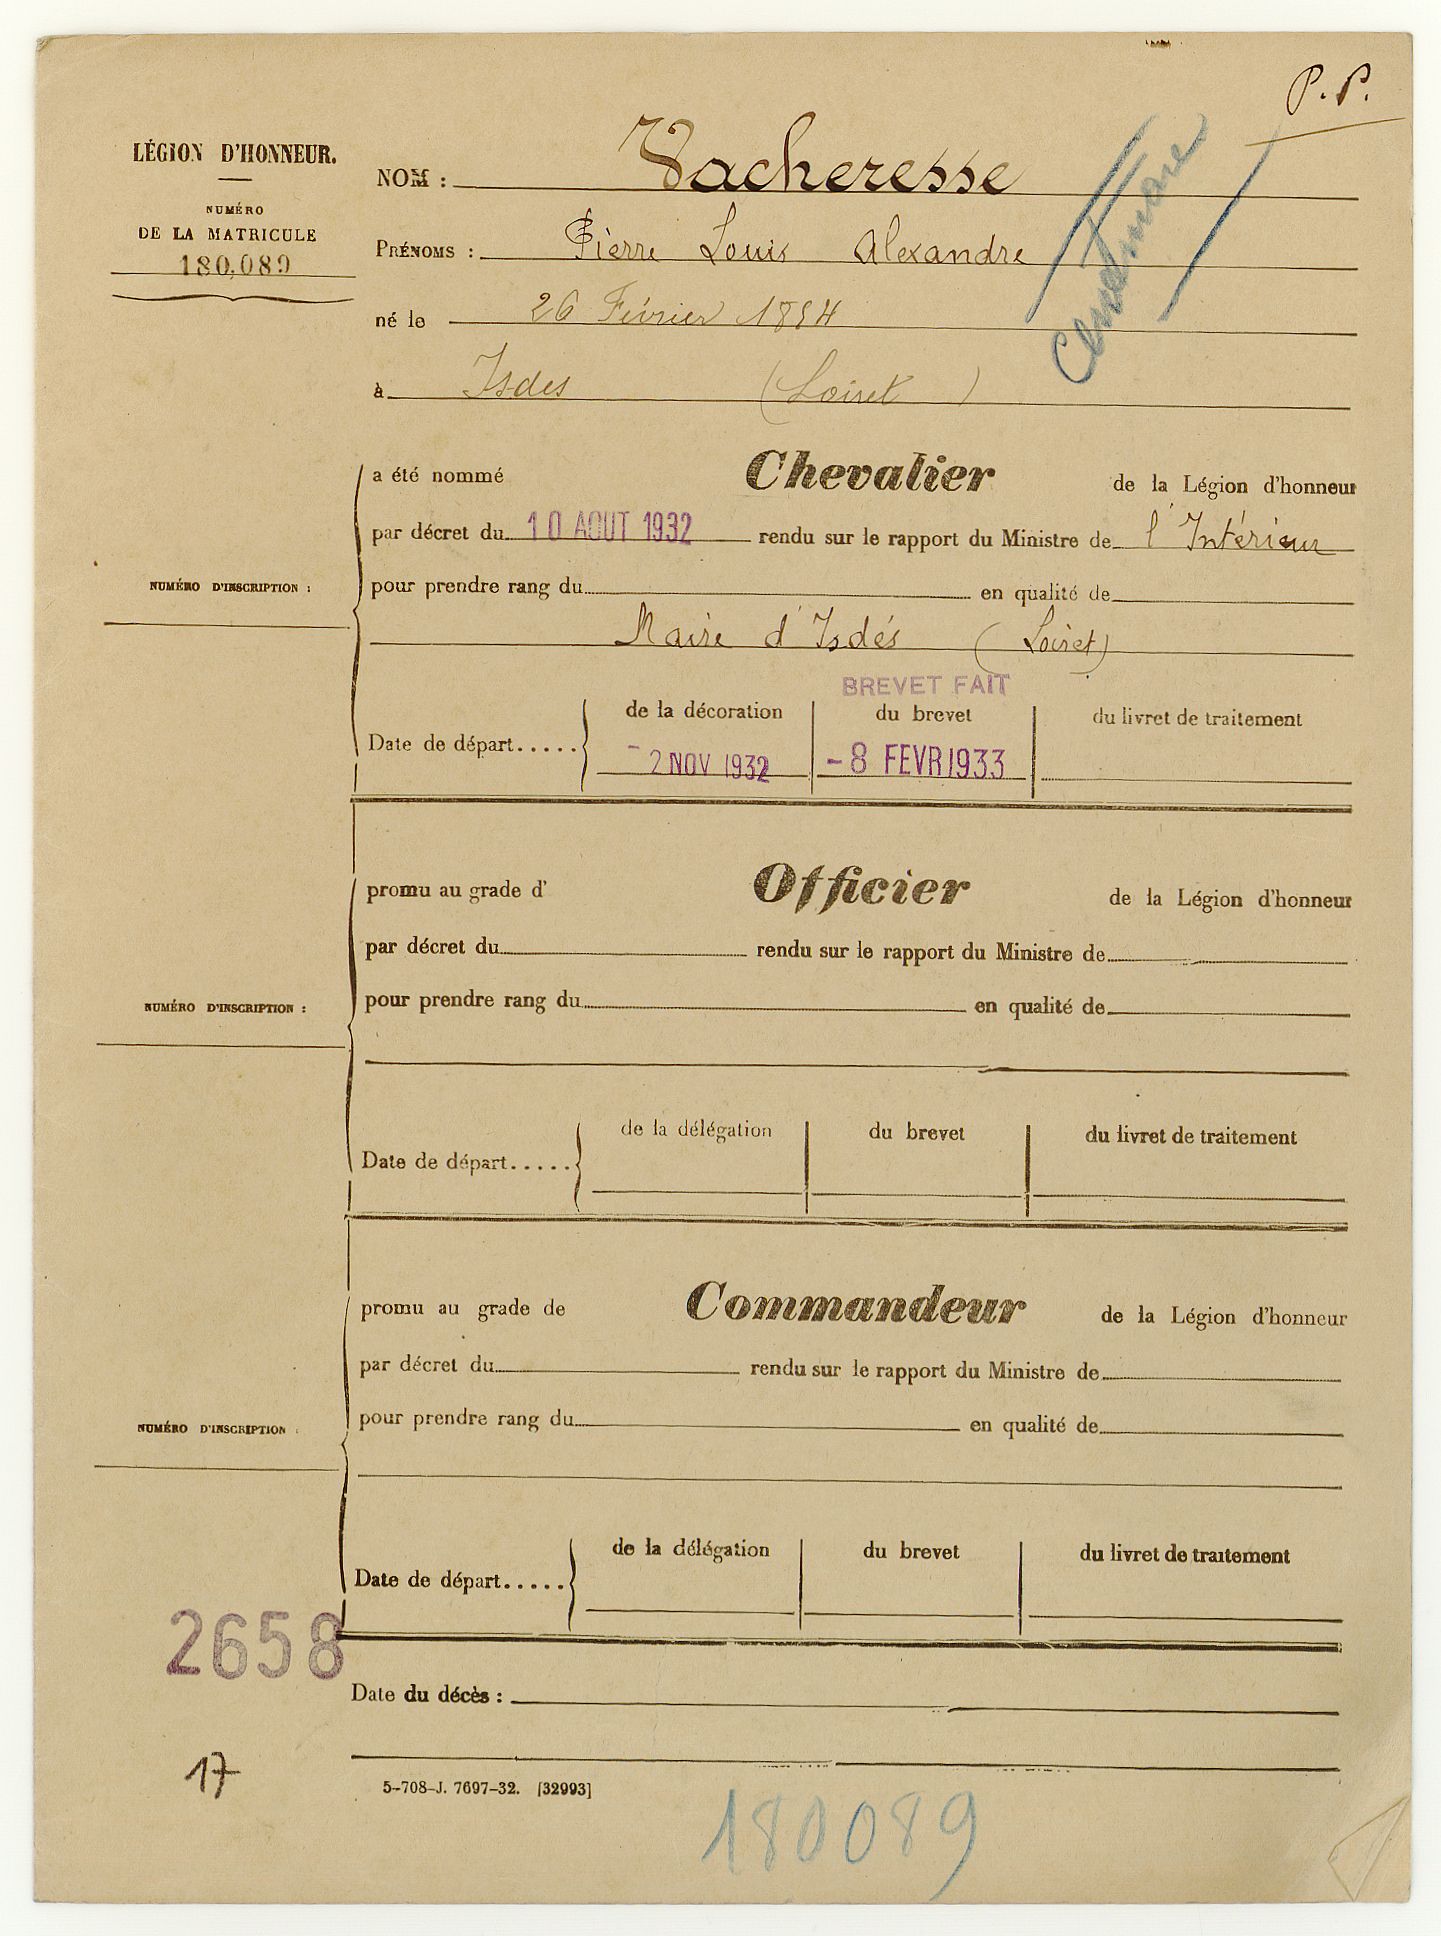 P. P.
LÉGION D'HONNEUR.
NUMÉRO
DE LA MATRICULE
180,089
NOM : Vacheresse
PRÉNOMS : Pierre Louis Alexandre
né le 26 Février 1894
à Isdes (Loiret)
a été nommé Chevalier de la Légion d'honneur
par décret du 10 AOUT 1932 rendu sur le rapport du Ministre de l'Intérieur
NUMÉRO D'INSCRIPTION :
pour prendre rang du en qualité de
Maire d'Isdés (Loiret)
BREVET FAIT
de la décoration du brevet du livret de traitement
Date de départ.....
- 2 NOV 1932 - 8 FEVR 1933
promu au grade d' Officier de la Légion d'honneur
par décret du rendu sur le rapport du Ministre de
NUMÉRO D'INSCRIPTION :
pour prendre rang du en qualité de
de la délégation du brevet du livret de traitement
Date de départ.....
promu au grade de Commandeur de la Légion d'honneur
par décret du rendu sur le rapport du Ministre de
NUMÉRO D'INSCRIPTION :
pour prendre rang du en qualité de
de la délégation du brevet du livret de traitement
Date de départ.....
2658
Date du décès :
17
5-708-J. 7697-32. [32993]
180089